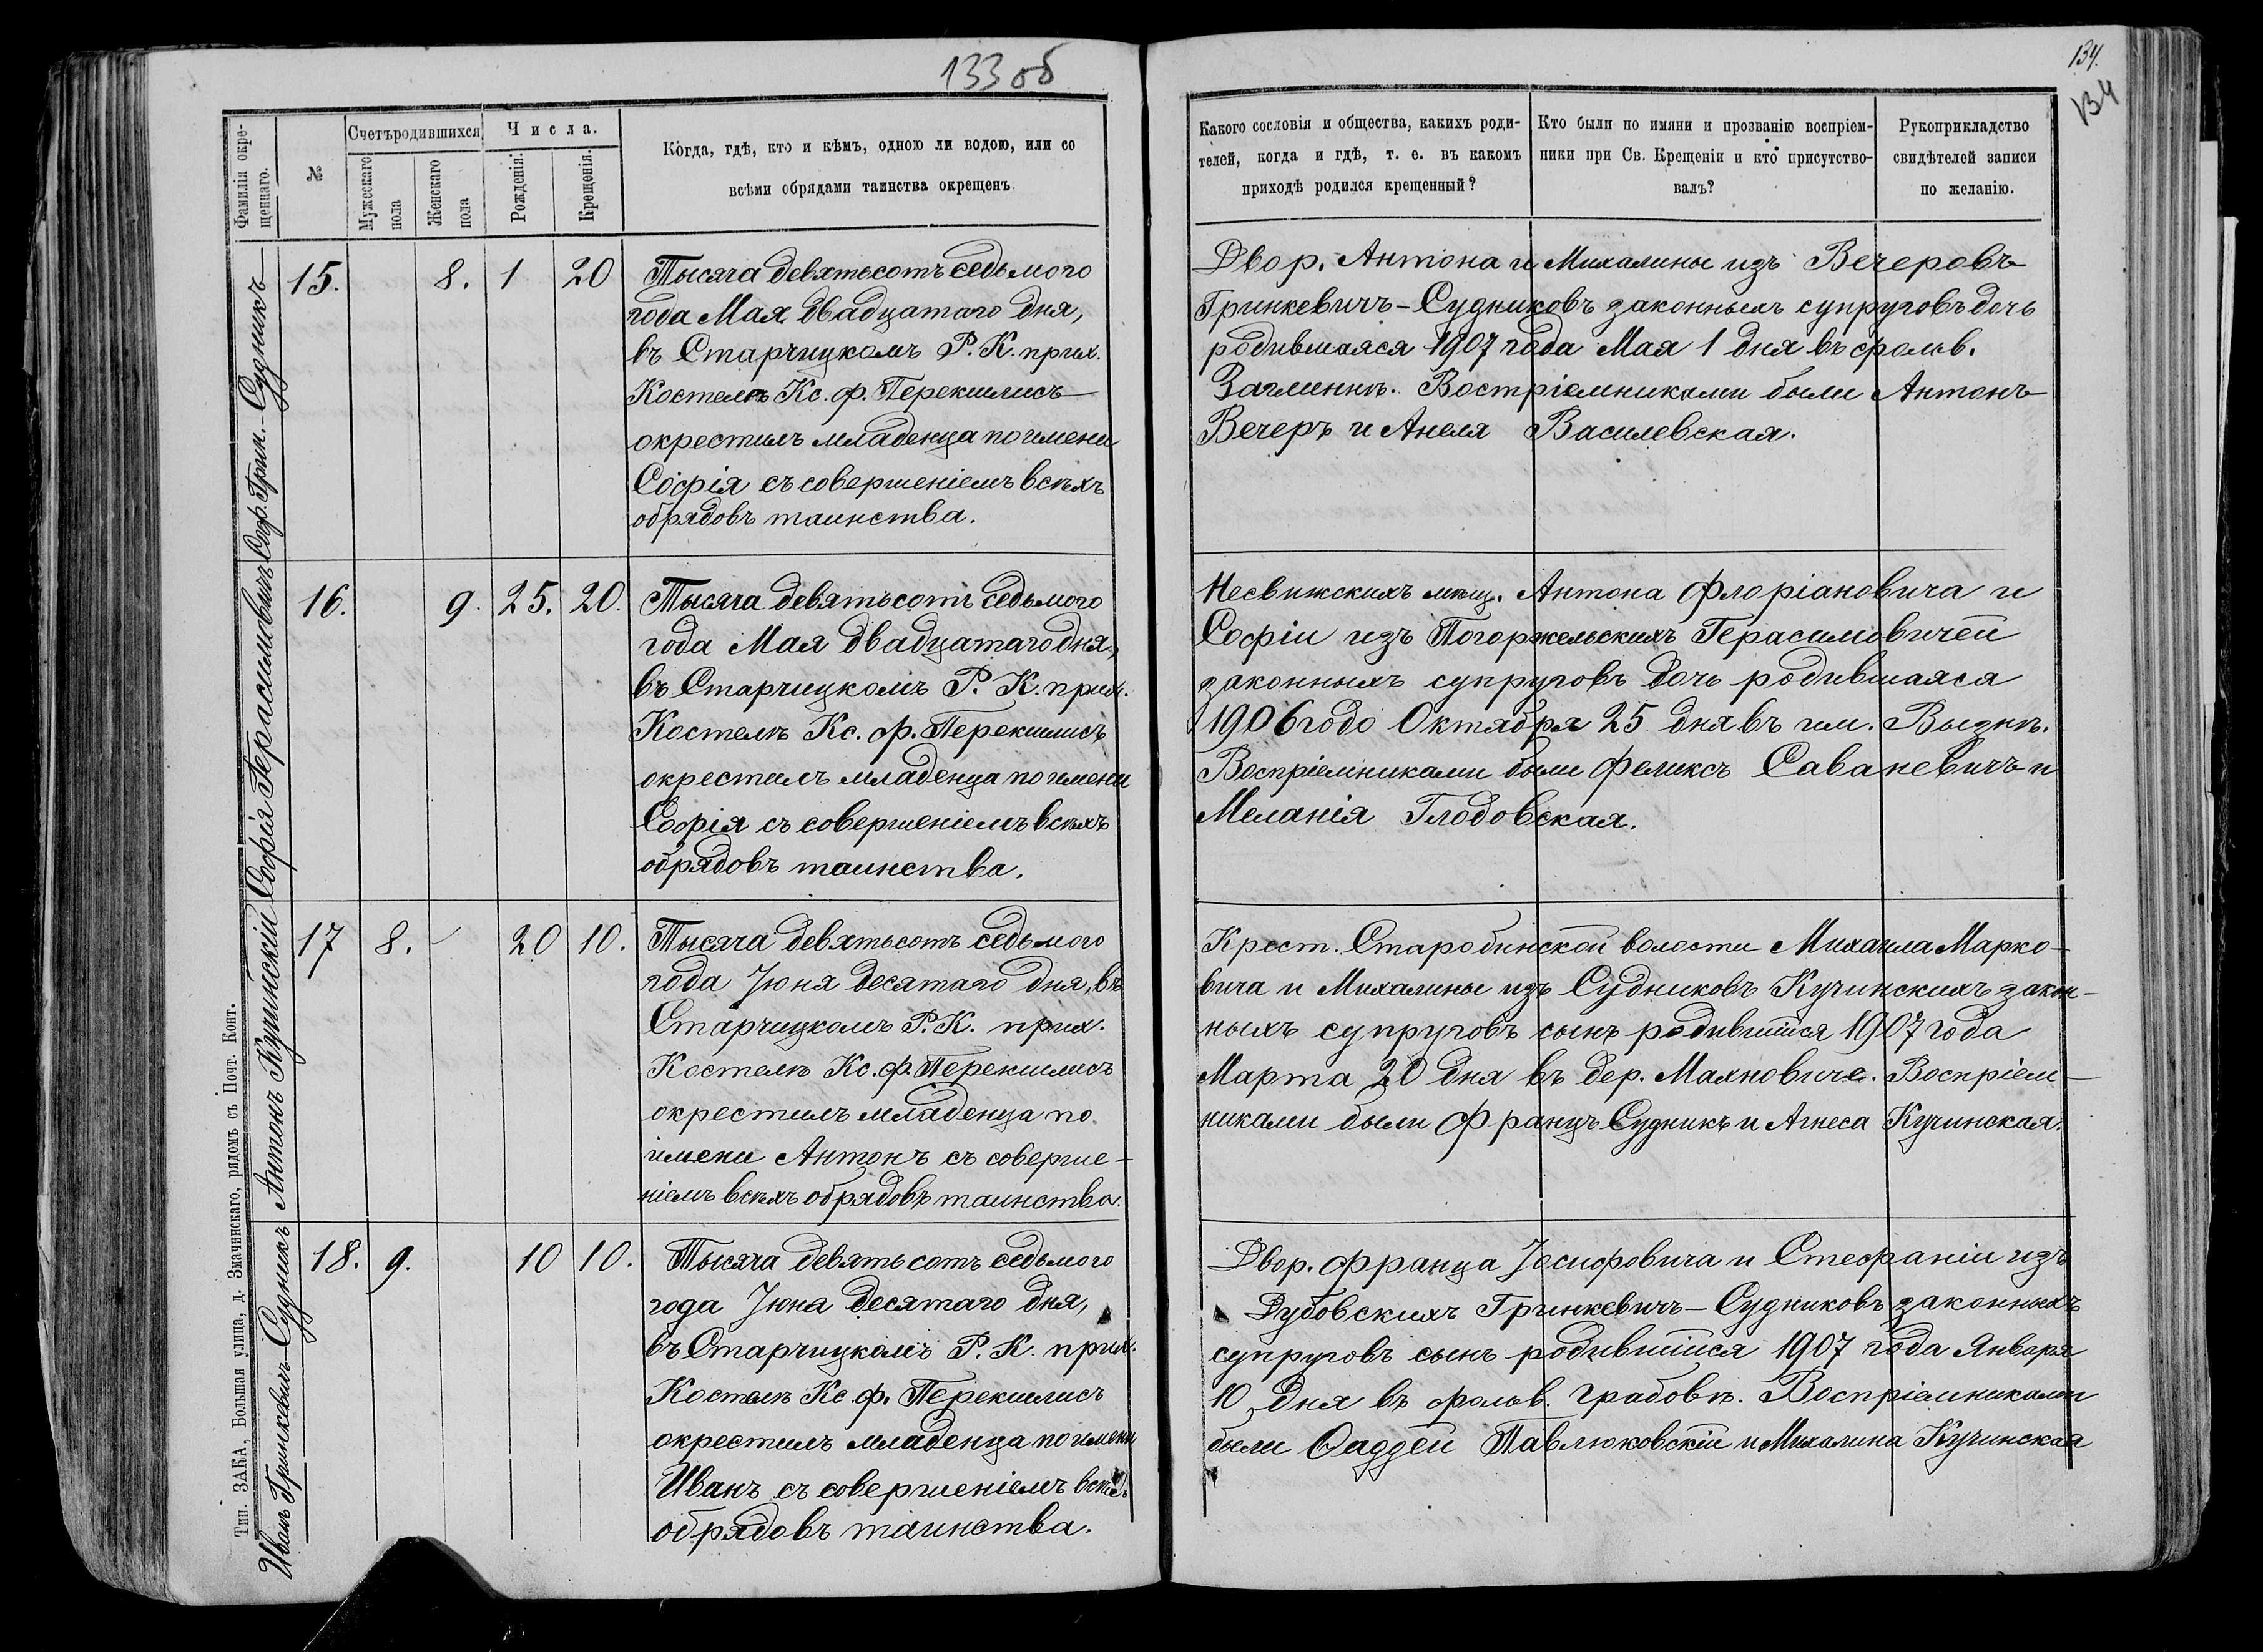 133 об
134.
134
Фамилія окре-
щеннаго.
№
Счетъ родившихся
Мужескаго
пола
Женскаго
пола
Числа.
Рожденія.
Крещенія.
Когда, гдѣ, кто и кѣмъ, одною ли водою, или со
всѣми обрядами таинства окрещенъ
Какого сословія и общества, какихъ роди-
телей, когда и гдѣ, т. е. въ какомъ
приходѣ родился крещенный?
Кто были по имяни и прозванію воспріем-
ники при Св. Крещеніи и кто присутство-
валъ?
Рукоприкладство
свидѣтелей записи
по желанію.
Соф. Грин.-Судникъ
15.
8.
1
20
Тысяча девятьсотъ седьмого
года Мая двадцатаго дня,
въ Старчицкомъ Р. К. прих.
Костелѣ Кс. Ф. Перекшлисъ
окрестилъ младенца по имени
Софія съ совершеніемъ всѣхъ
обрядовъ таинства.
Двор. Антона и Михалины изъ Вечеровъ
Гринкевичъ-Судниковъ законныхъ супруговъ дочь
родившаяся 1907 года Мая 1 дня въ фольв.
Востріемниками были Антонъ
Вечеръ и Анеля Василевская.
Софія Герасимовичъ
16.
9.
25.
20.
Тысяча девятьсотъ седьмого
года Мая двадцатаго дня,
въ Старчицкомъ Р. К. прих.
Костелѣ Кс. Ф. Перекшлисъ
окрестилъ младенца по имени
Софія съ совершеніемъ всѣхъ
обрядовъ таинства.
Несвижскихъ мѣщ. Антона Флоріановича и
Софіи изъ Погоржельскихъ Герасимовичей
законныхъ супруговъ дочь родившаяся
1906 года Октября 25 дня въ им. Вызнѣ.
Воспріемниками были Феликсъ Саваневичъ и
Меланія Глодовская.
Антонъ Кучинскій
17
8.
20
10.
Тысяча девятьсотъ седьмого
года Іюня десятаго дня, въ
Старчицкомъ Р. К. прих.
Костелѣ Кс. Ф. Перекшлисъ
окрестилъ младенца по
имени Антонъ съ соверше-
ніемъ всѣхъ обрядовъ таинства.
Крест. Старобинской волости Михаила Марко-
вича и Михалины изъ Судниковъ Кучинскихъ закон-
ныхъ супруговъ сынъ родившійся 1907 года
Марта 20 дня въ дер. Махновиче. Воспріем-
никами были Францъ Судникъ и Агнеса Кучинская.
Иванъ Гринкевичъ-Судникъ
18.
9.
10
10.
Тысяча девятьсотъ седьмого
года Іюня десятаго дня,
въ Старчицкомъ Р. К. прих.
Костелѣ Кс. Ф. Перекшлисъ
окрестилъ младенца по имени
Иванъ съ совершеніемъ всѣхъ
обрядовъ таинства.
Двор. Франца Іосифовича и Стефаніи изъ
Дубовскихъ Гринкевичъ-Судниковъ законныхъ
супруговъ сынъ родившійся 1907 года Января
10 дня въ фольв. Грабовѣ. Воспріемниками
были Ѳаддей Павлюковскій и Михалина Кучинская
Тип. ЗАКА, Большая улица, д. Змачинскаго, рядомъ съ Почт. Конт.